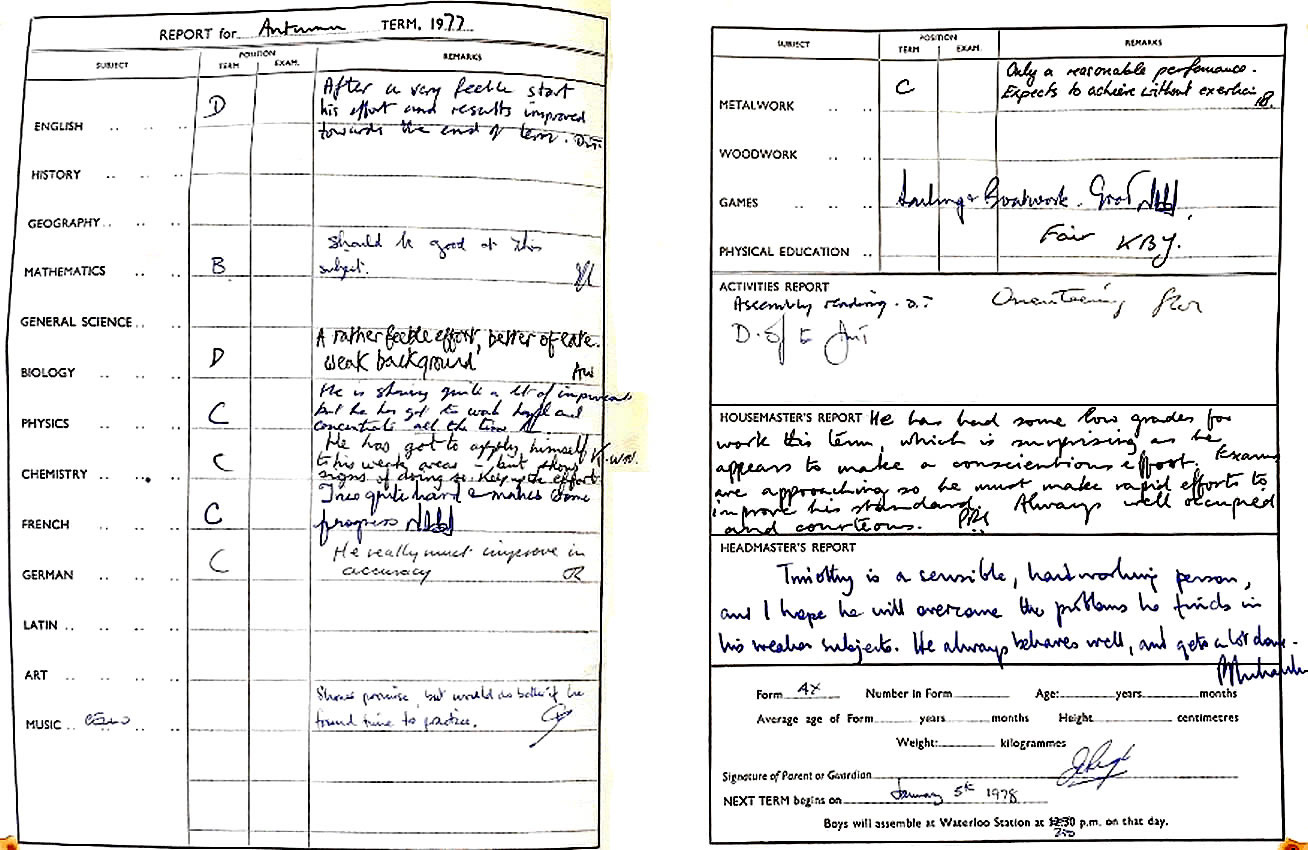 REPORT for Autumn TERM, 1977
SUBJECT POSITION REMARKS
TERM EXAM.
ENGLISH D After a very feeble start
his effort and results improved
towards the end of term. D.T.
HISTORY
GEOGRAPHY
MATHEMATICS B Should be good at this
subject.
GENERAL SCIENCE
BIOLOGY D A rather feeble effort, better of late.
weak background
PHYSICS C He is showing quite a lot of improvement
but he has got to work hard and
concentrate all the time
CHEMISTRY C He has got to apply himself
to his weak areas - but shows
signs of doing so. Keep up the effort K.W.N.
FRENCH C Tries quite hard & makes some
progress
GERMAN C He really must improve in
accuracy
LATIN
ART
MUSIC CELLO Shows promise, but would do better if he
found time to practice.
SUBJECT POSITION REMARKS
TERM EXAM.
METALWORK C Only a reasonable performance.
Expects to achieve without exertion
WOODWORK
GAMES Sailing & Boatwork. Good
PHYSICAL EDUCATION Fair KBY.
ACTIVITIES REPORT
Assembly reading. D.T. Orienteering
D. of E
HOUSEMASTER'S REPORT He has had some low grades for
work this term, which is surprising as he
appears to make a conscientious effort. Exams
are approaching so he must make rapid efforts to
improve his standard. Always well occupied
and courteous.
HEADMASTER'S REPORT
Timothy is a sensible, hardworking person,
and I hope he will overcome the problems he finds in
his weaker subjects. He always behaves well, and gets a lot done.
Form 4X Number in Form Age: years months
Average age of Form years months Height centimetres
Weight: kilogrammes
Signature of Parent or Guardian
NEXT TERM begins on January 5th 1978
Boys will assemble at Waterloo Station at 12.30 p.m. on that day.